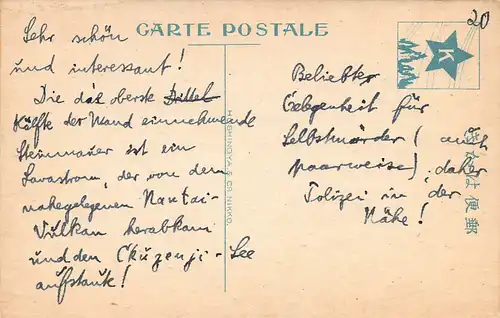 CARTE POSTALE
20
K
Sehr schön
und interessant!
Die das oberste Drittel
Hälfte der Wand einnehmende
Steinmauer ist ein
Lavastrom, der von dem
nahegelegenen Nantai-
Vulkan herabkam
und den Chuzenji-See
aufstaute!
HOSHINOYA & CO. NIKKO.
Beliebte
Gelegenheit für
Selbstmörder (auch
paarweise), daher
Polizei in der
Nähe!
郵便はがき